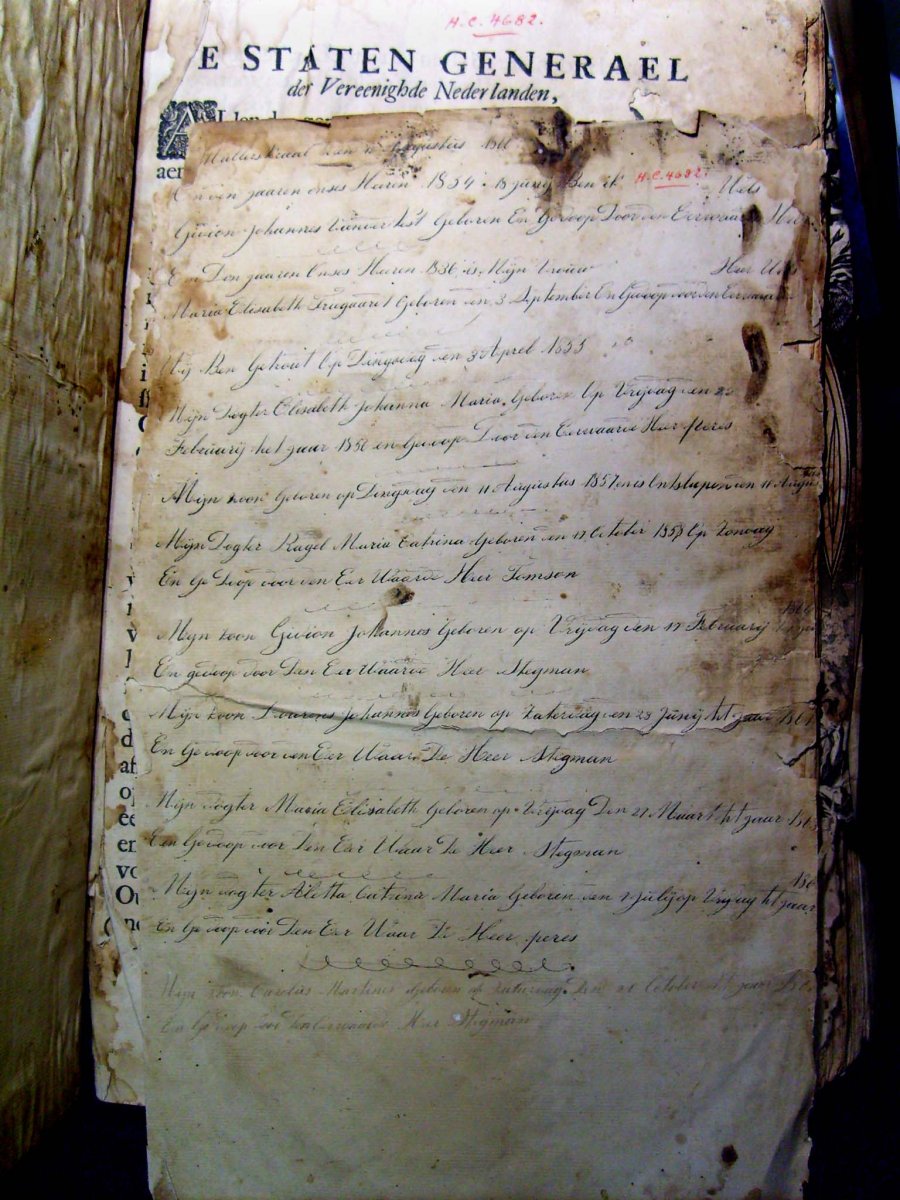 H.C. 4682.
E STATEN GENERAEL
der Vereenighde Nederlanden,
A
aer
den Augustus
H.C. 4682.
jaaren onses Heeren 1834 . 15 Junij Ben ik Uels
Givion Johannes Geboren En Gedoop Door den Eerwaar Heer
En Den jaaren Onses Heeren 1836 is Mijn Vrouw Heer Uels
Maria Elisabeth Geboren den 3 September En Gedoop door den Eerwaar
Wij Ben Getrout Op Dingsdag den 3 April 1855
Mijn Dogter Elisabeth Johanna Maria Geboren Op Vrijdag den 22
Februarij het jaar 1856 en Gedoop Door den Eerwaarde Heer peres
Mijn zoon Geboren op Dingsdag den 11 Augustus 1857 en is Ontslapen den 11 Augus
Mijn Dogter Ragel Maria Catrina Geboren den 17 October 1858 Op Zondag
En Ge Doop door den Eer Waarde Heer Tomson
Mijn zoon Givion Johannes Geboren op Vrijdag den 17 Februarij
En gedoop door Den Eer Waarde Heer Stegman
Mijn zoon Lourens Johannes Geboren op Zaterdag den 23 Junij het jaar
En Gedoop door den Eer Waar De Heer Stegman
Mijn dogter Maria Elisabeth Geboren op Vrijdag Den 27 Maart het jaar
En Gedoop door Den Eer Waar De Heer Stegman
Mijn dogter Aletta Catrina Maria Geboren den Julij op Vrijdag het jaar
En Gedoop door Den Eer Waar De Heer peres
Mijn zoon Carolus Martinus Geboren op Zaturdag Den October het jaar
En Gedoop door den Eerwaarde Heer Stegman